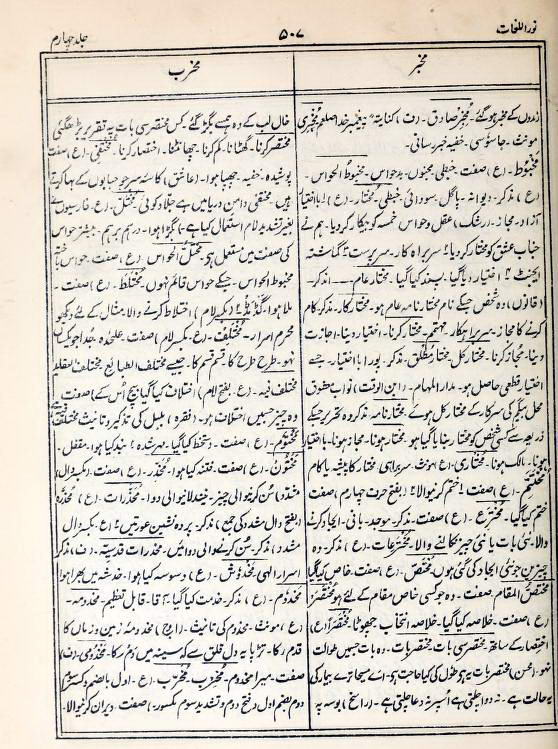 نور اللغات
۵۰۷
جلد چہارم
مخبر
زمزوں کے مخبر ہو گئے۔ مُخبرِ صادق۔ (ف) کنایۃً پیغمبر خدا صلعم۔ مُخبری
مونث۔ جاسوسی۔ خفیہ خبر رسانی۔
مَخبُوط۔ (ع) صفت۔ خبطی۔ مجنوں۔ بدحواس۔ مخبوط الحواس۔
(ع) مذکر۔ دیوانہ۔ پاگل۔ سودائی۔ خبطی۔ مُختار۔ (ع) ۱ با اختیار
آزاد۔ مجاز۔ (رشک) عقل و حواس خمسہ کو بیکار کر دیا۔ ہم نے
جناب عشق کو مختار کر دیا ۲ سربراہ کار۔ سرپرست ۳ گماشتہ
ایجنٹ ۴ اختیار دیا گیا۔ پسند کیا گیا۔ مختار عام۔ مذکر۔
(قانون) وہ شخص جسکے نام مختار نامہ عام ہو۔ مختار کار۔ مذکر۔ کام
کرنے کا مجاز۔ سربراہکار۔ مہتمم۔ مختار کرنا۔ اختیار دینا۔ اجازت
دینا۔ مجاز کرنا۔ مختار کل۔ مختار مُطلق۔ مذکر۔ پورا با اختیار۔ جسے
اختیار قطعی حاصل ہو۔ مدار المہام۔ (ابن الوقت) نواب معشوق
محل بیگم کی سرکار کے مختار کل ہوئے۔ مختار نامہ۔ مذکر وہ تحریر جسکے
ذریعہ سے کسی شخص کو مختار بنایا گیا ہو۔ مختار ہونا۔ مجاز ہونا۔ با اختیار
ہونا۔ مالک ہونا۔ مختاری۔ (ع) مونث۔ سربراہی۔ مختار کا پیشہ یا کام
مختتم۔ (ع) صفت ۱ ختم کرنیوالا ۲ (بفتح حرف چہارم) صفت
ختم کیا گیا۔ مخترع۔ (ع) صفت۔ مذکر۔ موجد۔ بانی۔ ایجاد کرنے
والا۔ نئی بات یا نئی چیز نکالنے والا۔ مخترعات۔ (ع) مذکر۔ وہ
چیزیں جو نئی ایجاد کی گئی ہوں۔ مختص۔ (ع) صفت۔ خاص کیا گیا
مختص المقام۔ صفت۔ وہ جو کسی خاص مقام کے لئے ہو۔ مختصر
(ع) صفت۔ خلاصہ کیا گیا۔ خلاصہ۔ انتخاب۔ چھوٹا۔ مختصراً (ع)
اختصار کے ساتھ۔ مختصر سی بات۔ مختصر بات۔ وہ بات جسمیں طوالت
نہو۔ (محسن) مختصر بات یہ ہے طول کی کیا حاجت ہے۔ اے مسیحا ترے بیمار کی
یہ حالت ہے۔ نہ دوا چلتی ہے اُس پر نہ دعا چلتی ہے۔ (راسخ) بوسہ پہ
مخرب
خال لب کے وہ جیسے بگڑ گئے۔ کس مختصر سی بات پہ تقریر بڑھ گئی
مختصر کرنا۔ گھٹانا۔ کم کرنا۔ چھانٹنا۔ اختصار کرنا۔ مختفی۔ (ع) صفت
پوشیدہ۔ خفیہ۔ چھپا ہوا۔ (عاشق) کاسۂ سر جو حبابوں کے بہا کرتے
ہیں۔ مختفی دامن دریا میں ہے جلاد کوئی۔ مُختل۔ (ع۔ فارسیوں نے
بغیر تشدید لام استعمال کیا ہے) بگڑا ہوا۔ درہم برہم۔ بیشتر حواس
کی صفت میں مستعمل ہے۔ مختل الحواس۔ (ع) صفت۔ حواس باختہ
مخبوط الحواس۔ جسکے حواس قائم نہوں۔ مختلط۔ (ع) صفت۔
ملا ہوا۔ گڈمڈ ۲ (بکسر لام) اختلاط کرنے والا۔ مثال کے لئے دیکھو
محرم اسرار۔ مُختلف۔ (ع) بکسر لام) صفت۔ علیحدہ۔ جدا جو یکساں
نہو۔ طرح طرح کا۔ قسم قسم کا۔ جیسے مختلف الطبائع۔ مختلف اقلیم
مختلف فیہ۔ (ع۔ بفتح لام) اختلاف کیا گیا بیچ اُس کے) صفت
وہ چیز جسمیں اختلاف ہو۔ (فقرہ) بلبل کی تذکیر و تانیث مختلف فیہ ہے
مختوم۔ (ع) صفت۔ دستخط کیا گیا۔ مہر شدہ ۲ بند کیا ہوا۔ مقفل۔
مختون۔ (ع) صفت۔ ختنہ کیا ہوا۔ مُخدِّر۔ (ع) صفت۔ (بکسر دال
مشدد) سُن کرنیوالی چیز۔ نیند لانیوالی دوا۔ مخدرات۔ (ع) مُخَدَّرہ
(بفتح دال مشدد کی جمع) مذکر۔ پردہ نشین عورتیں ۲ (ع) بکسر دال
مشدد) مذکر۔ سُن کرنے والی دوائیں۔ مخدرات قدسیہ۔ (ف) مذکر
اسرار الٰہی۔ مخدوش۔ (ع) وسوسہ کیا ہوا۔ خدشہ میں بھرا ہوا
مخدوم۔ (ع) مذکر۔ خدمت کیا گیا ۲ آقا۔ قابل تعظیم۔ مخدومہ۔
(ع) مونث۔ مخدوم کی تانیث۔ (اوج) مخدومۂ زمین و زماں کا
قدم رکا۔ تڑپا یہ دل قلق سے کہ سینے میں دم رکا۔ مخدومی۔ (ف)
صفت۔ میرا مخدوم۔ مُخرِب۔ مُخرِّب۔ (ع) اول بالضم و کسر سوم
دوم بضم اول و فتح دوم و تشدید سوم مکسور) صفت۔ ویران کرنیوالا۔